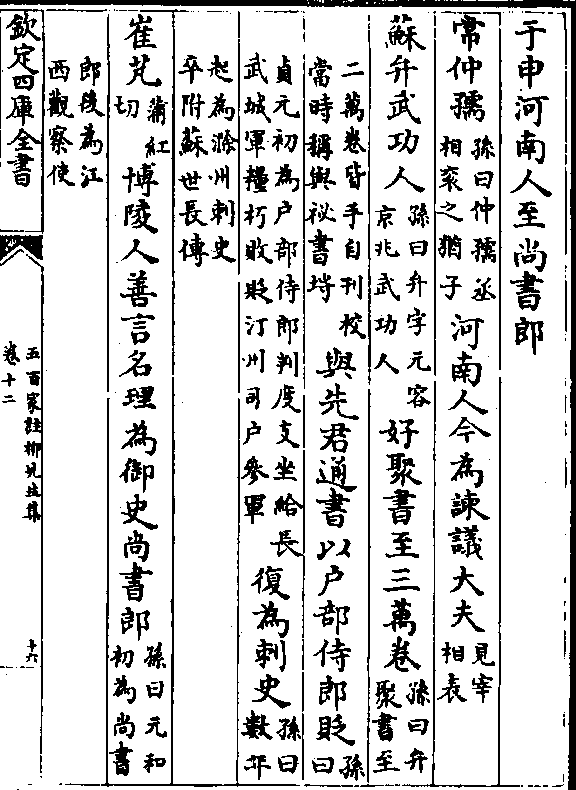 于申河南人至尚書郎
常仲孺孫曰仲孺丞相衮之猶子河南人今為諫議大夫見宰相表
蘇弁武功人孫曰弁字元容京兆武功人好聚書至三萬卷孫曰弁聚書至
二萬卷皆手自刊校當時稱與祕書埒與先君通書以户部侍郎貶孫曰
貞元初為户部侍郎判度支坐給長武城軍糧朽敗貶汀州司户參軍復為刺史孫曰數年
起為滁州刺史卒附蘇世長傳
崔芃蒲紅切博陵人善言名理為御史尚書郎孫曰元和初為尚書
郎後為江西觀察使
欽定四庫全書
五百家註柳先生集
卷十二
十六